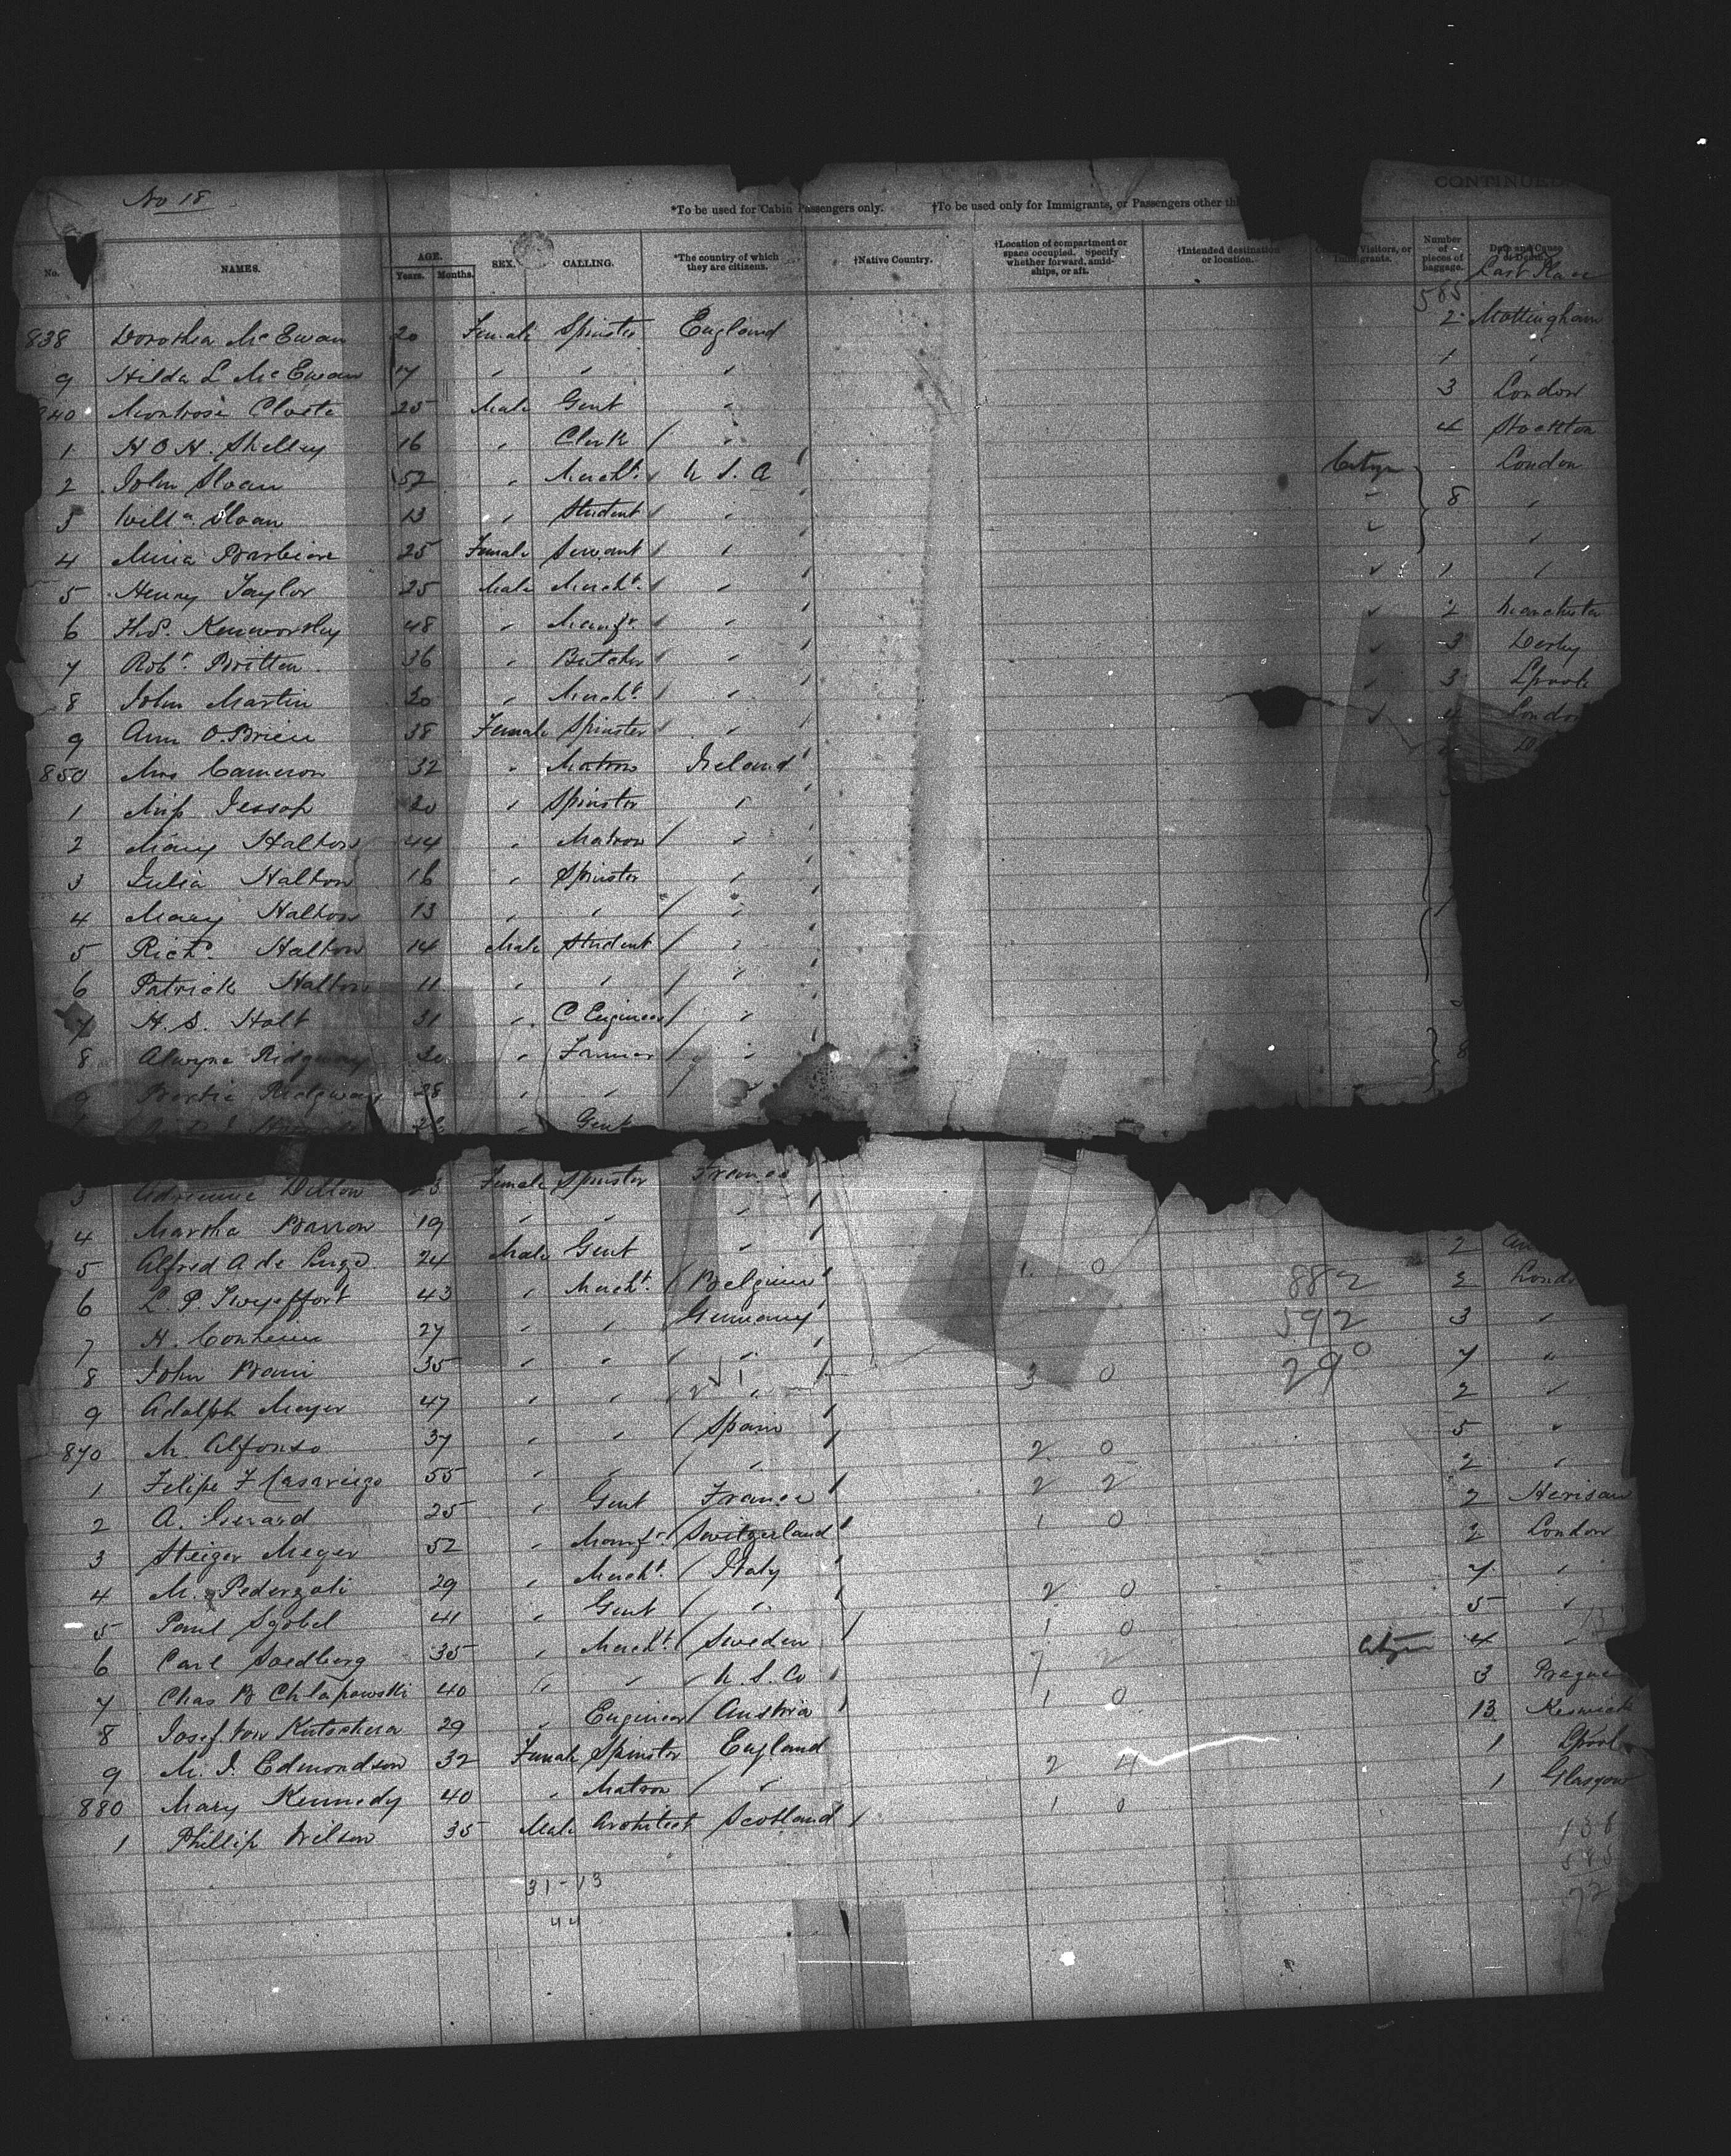 No 18
CONTINUED
*To be used for Cabin Passengers only. †To be used only for Immigrants, or Passengers other th
No. NAMES. AGE. Years. Months. SEX. CALLING. *The country of which they are citizens. †Native Country. †Location of compartment or space occupied. Specify whether forward, amidships, or aft. †Intended destination or location. Visitors, or Immigrants. Number of pieces of baggage. Date and Cause of Death.
Last Place
585
838 Dorothea McEwan 20 Female Spinster England 2 Mottingham
9 Hilda L McEwan 17 " " " 1 "
840 Montrose Cloete 25 Male Gent " 3 London
1 H O H. Shelley 16 " Clerk / " 4 Stockton
2 John Sloan 52 " Mercht. U S. A London
3 Willm. Sloan 13 " Student " 8 "
4 Barbiere 25 Female Servant " "
5 Henry Taylor 25 Male Mercht. " 1 "
6 Thos. Kenworthy 48 " Manfr. " 2 Manchester
7 Robt. Britten 36 " Butcher " 3 Derby
8 John Martin 30 " Mercht. " 3 Lpool
9 Ann O.Brien 38 Female Spinster " London
850 Mrs Cameron 32 " Matron Ireland
1 Miss Jessop 20 " Spinster "
2 Mary Halton 44 " Matron / "
3 Julia Halton 16 " Spinster "
4 Mary Halton 13 " " / "
5 Richd. Halton 14 Male Student / "
6 Patrick Halton 11 " " / "
7 H. S. Holt 31 " C Engineer / "
8 Alwyne Ridgway 30 " Farmer / " 8
9 Bertie Ridgway 28 " " /
Gent
3 Adrienne Dillon 23 Female Spinster France
4 Martha Barron 19 " " "
5 Alfred A de Lugo 24 Male Gent " 2
6 L. P. Twyeffort 43 " Mercht. / Belgium 1 0 882 2 Lond
7 H. Conheim 27 " " Germany 592 3 "
8 John 35 " " / " 290 7 "
9 Adolph Meyer 47 " " " 3 0 2 "
870 M. Alfonso 37 " " / Spain 5 "
1 Felipe F Casariego 55 " " / " 2 0 2 "
2 A. Gerard 25 " Gent France 2 2 2 Herisau
3 Steiger Meyer 52 " Manfr. / Switzerland 1 0 2 London
4 M. Pederzoli 29 " Mercht. / Italy 7 "
5 Paul Sgobel 41 " Gent / " 2 0 5 "
6 Carl Soedberg 35 " Mercht. / Sweden 1 0 4 "
7 Chas B Chlapowski 40 " " U. S. Co 7 2 3 Prague
8 Josef von Kutschera 29 " Engineer / Austria 1 0 13 Keswick
9 M. J. Edmondson 32 Female Spinster England 1 Lpool
880 Mary Kennedy 40 " Matron / " 2 4 1 Glasgow
1 Phillip Wilson 35 Male Architect Scotland / 1 0
31-13
44